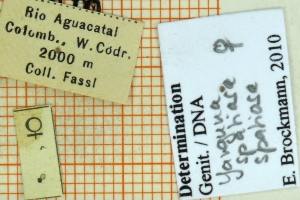 Rio Aguacatal
Columb., W. Cdr.
2000 m
Coll. Fassl
Determination
Genit. / DNA
Yanguna ♀
spatiosa
spatiosa
E. Brockmann, 2010